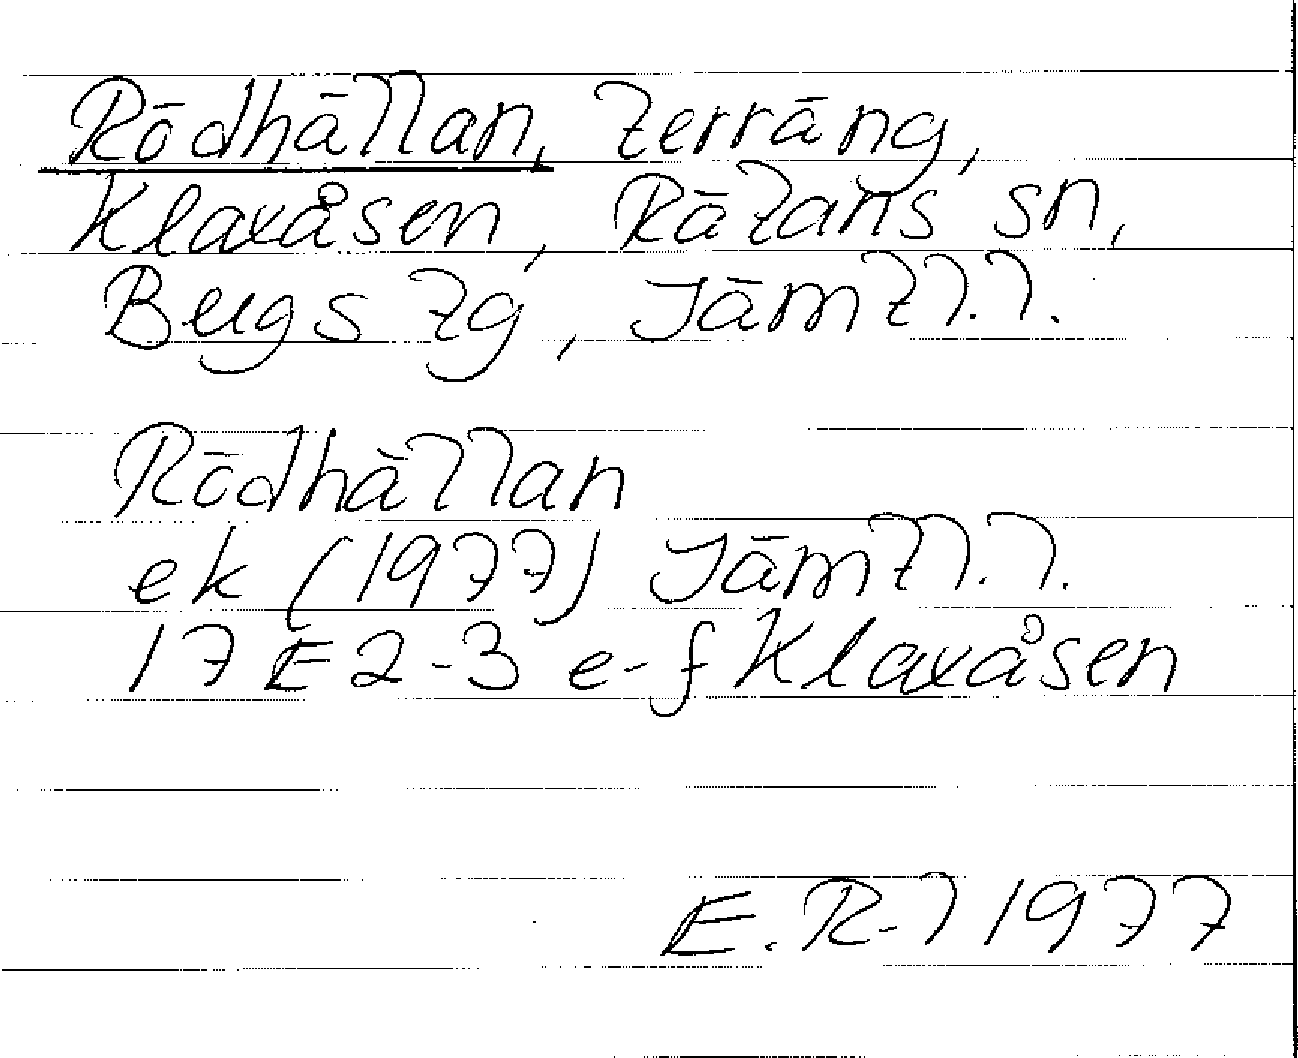 Rödhällan, terräng,
Klaxåsen, Rätans sn,
Bergs tg, Jämtl.l.
Rödhällan
ek (1977) Jämtl.l.
17E2-3 e-f Klaxåsen
E. R-l 1977